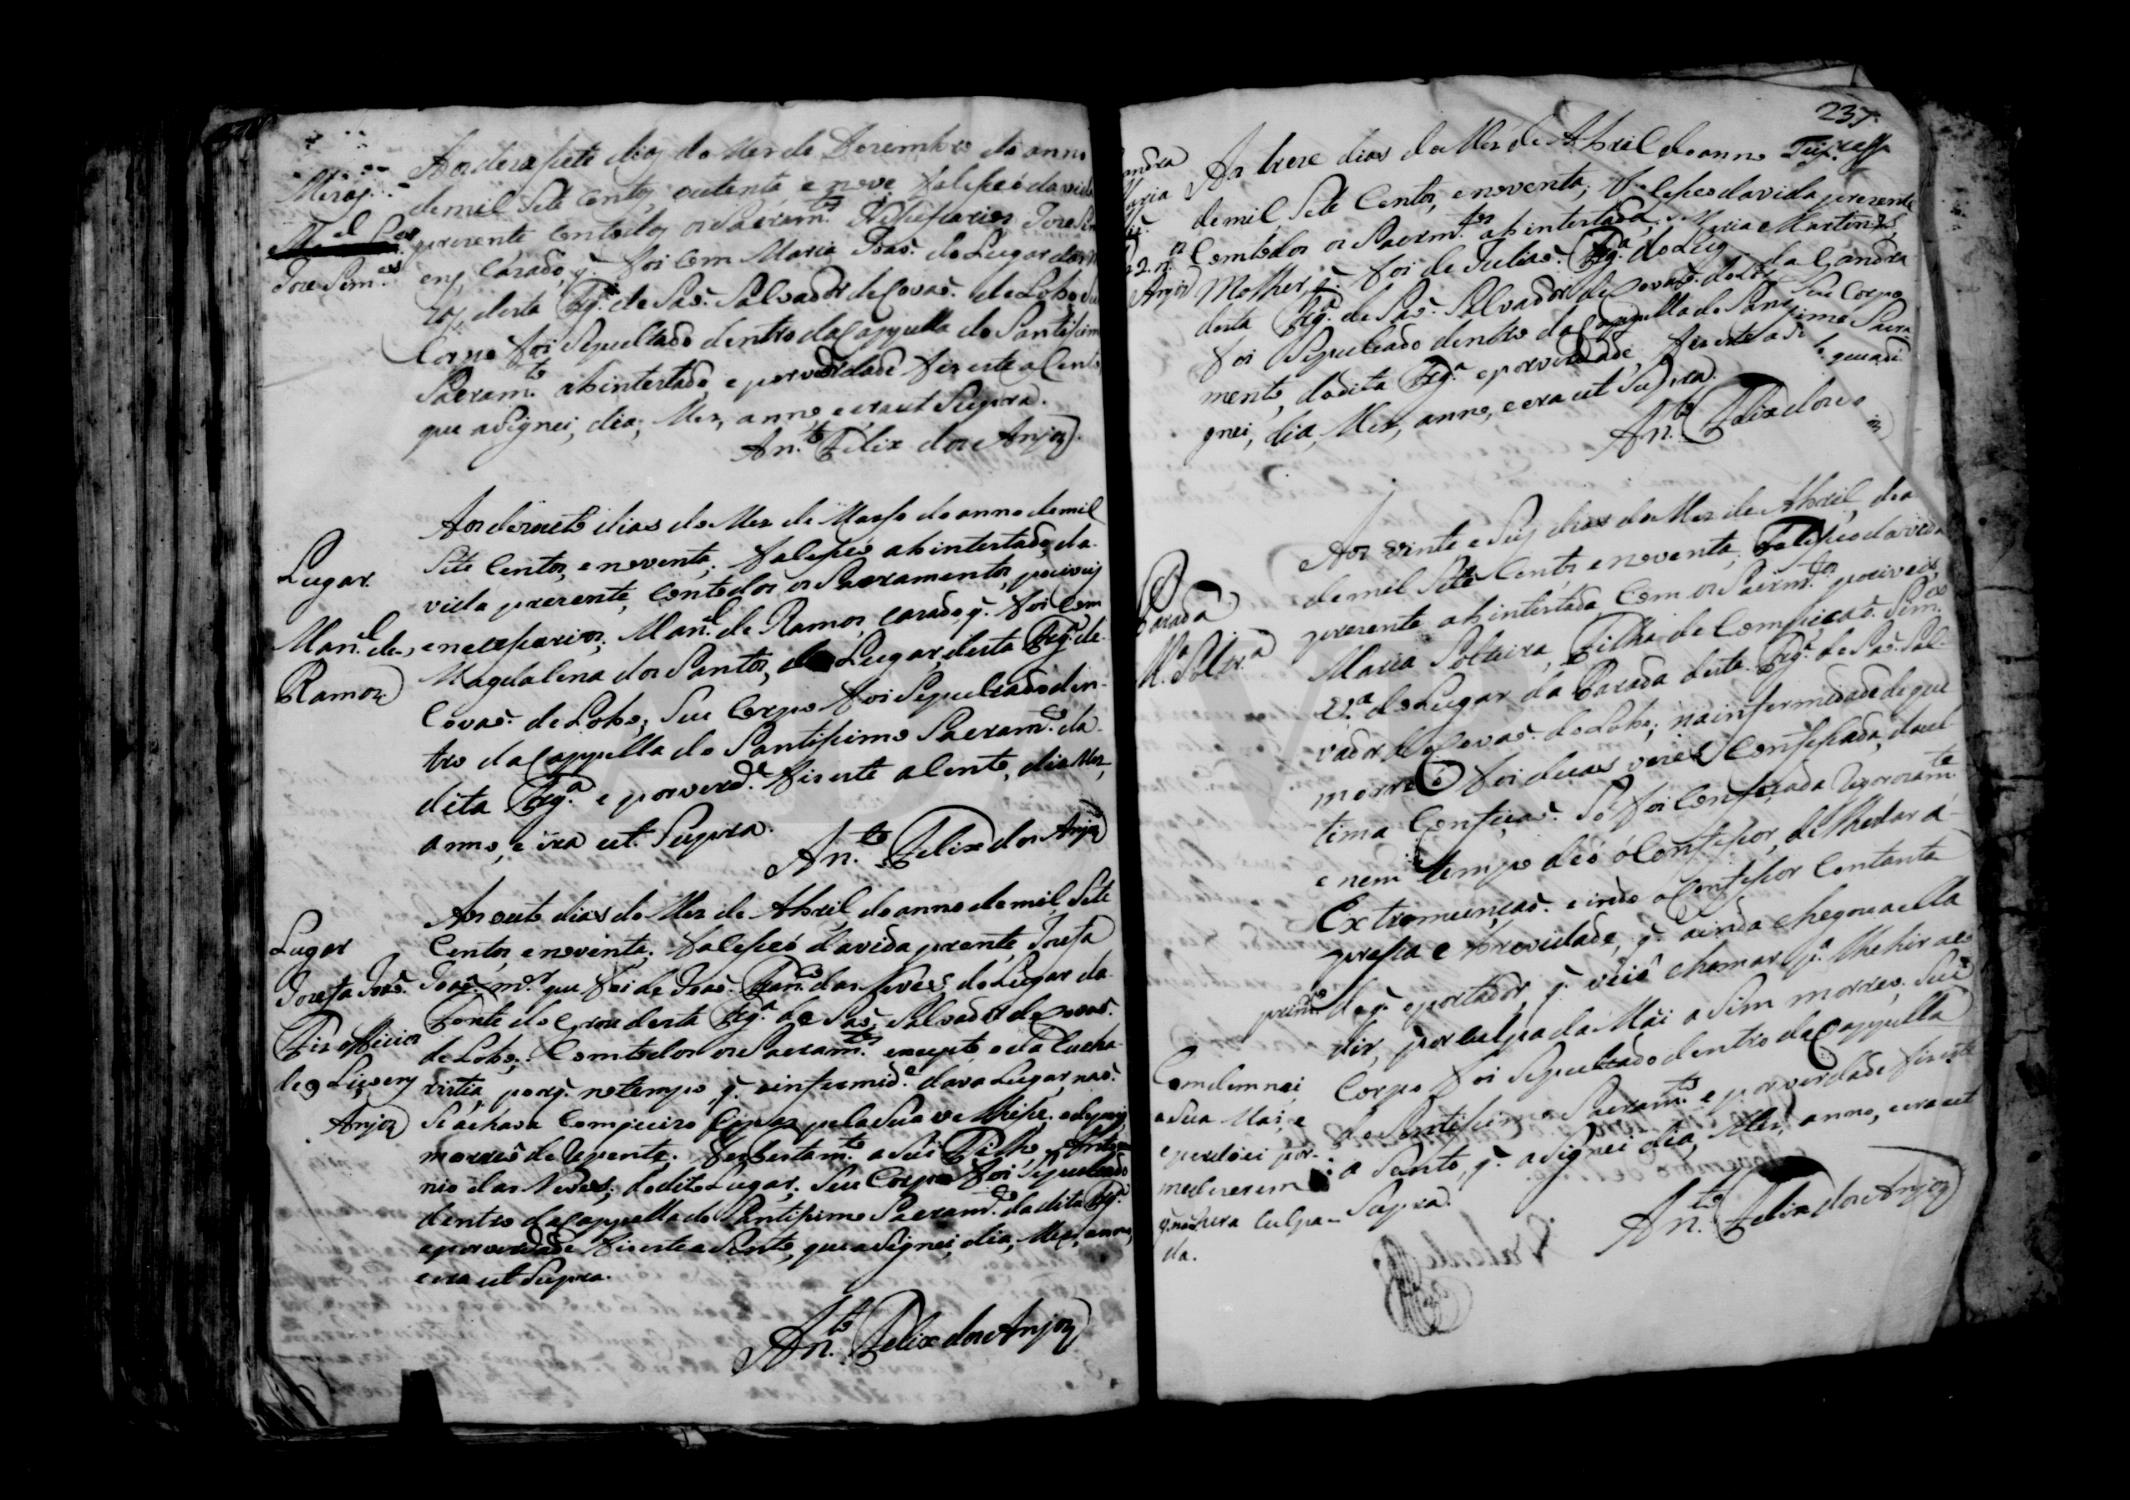 Miraz
Joze Sim.es
Aos dezasete dias do Mes de Dezembro do anno
de mil Sete Centos, outenta, e nove, faleseo da vida
prezente Com todos os Sacram.tos Joze Sim
cazado, q. foi com Maria Joaõ do Lugar
desta Frg.a de Saõ Salvador de Covaõ do Lobo Seu
Corpo foi Sepultado dentro da Cappella do Santisimo
Sacram.to abintestado, e por verdade fiz este aCento
que aSignei, dia, Mes, anno, e era ut Supra.
An.to Felix dos Anjos
Lugar
Man.el de
Ramos
Aos dezouto dias do Mes de Março do anno de mil
Sete Centos, e noventa; faleseo abintestado, da
vida prezente, Com todos os Sacramentos, posiveis
e nesesarios, Man.el de Ramos, cazado, q. foi Com
Magdalena dos Santos, do Lugar, desta Frg.a de
Covaõ do Lobo; Seu Corpo foi Sepultado den-
tro da Cappella do Santisimo Sacram.to da
dita Frg.a e por verd.e fis este aCento, dia Mes,
anno, e era ut Supra.
An.to Felix dos Anjos
Lugar
Jozefa Joaõ
Fis officios
de 9 Liçoens
Anjos
Aos outo dias do Mes de Abril do anno de mil Sete
Centos, e noventa; faleseo da vida prezente, Jozefa
Joaõ m.er que foi de Joaõ Fran.co das Neves, do Lugar da
Fonte do Grou desta Frg.a de Saõ Salvador de Covaõ
do Lobo; Com todos os Sacram.tos excepto o da Eucha-
ristia, porq. no tempo, q. a infirmid.e dava Lugar naõ
Se achava Compieiro pela Sua velhise, e depois
morreo de repente. Fes testam.to a Seu Filho Anto-
nio das Neves, do dito Lugar; Seu Corpo foi Sepultado
dentro da Cappella do Santisimo Sacram.to da dita Frg.a
e por verdade fis este aSento, que aSignei, dia, Mes, anno,
e era ut Supra.
An.to Felix dos Anjos
237.
andra
Maria
Anjos
Aos treze dias do Mes de Abril do anno
de mil Sete Centos, e noventa; faleseo da vida prezente
Com todos os Sacram.tos abintestada, Maria Martins
Molher, q. foi de Juliaõ Frg.a do Lug da Gandra
desta Frg.a de Saõ Salvador de Covaõ do Lobo Seu Corpo
foi Sepultado dentro da Cappella do Santisimo Sacra
mento, da dita Frg.a e por verdade, fis este aSento que aSi
gnei, dia, Mes, anno, e era ut Supra.
An.to Felix dos
Parada
M.a Solt.ra
Aos vinte e Seis dias do Mes de Abril, do a
de mil Sete Centos e noventa; Faleseo da vida
prezente abintestada, Com os Sacram.tos posiveis,
Maria Solteira, Filha de Conseicaõ Sim.es
do Lugar da Parada desta Frg.a de Saõ Sal-
vador de Covaõ do Lobo; na infermidade de que
morreo foi duas vezes Confesada, da ul
tima Confisaõ Só foi Confesada Rigorozam.te
e nem tempo deo ó Confesor, de lhe dar á
Extremunçaõ e indo o Confesor Com tanta
presa e brevidade, q. ainda chegou a ella
prim.o do q. o portador, q. veio chamar p.a lhe hir ac
dir, por culpa da Mai aSim morreo, Seu
Corpo foi Sepultado dentro da Cappella
do Santisimo Sacram.to e por verdade fis este
aSento, q. aSignei dia, Mes, anno, e era ut
Supra.
Comdemnei
a Sua Mai, e
e perdoei por
me dizerem
q. naõ hera Culpa-
da.
An.to Felix dos Anjos